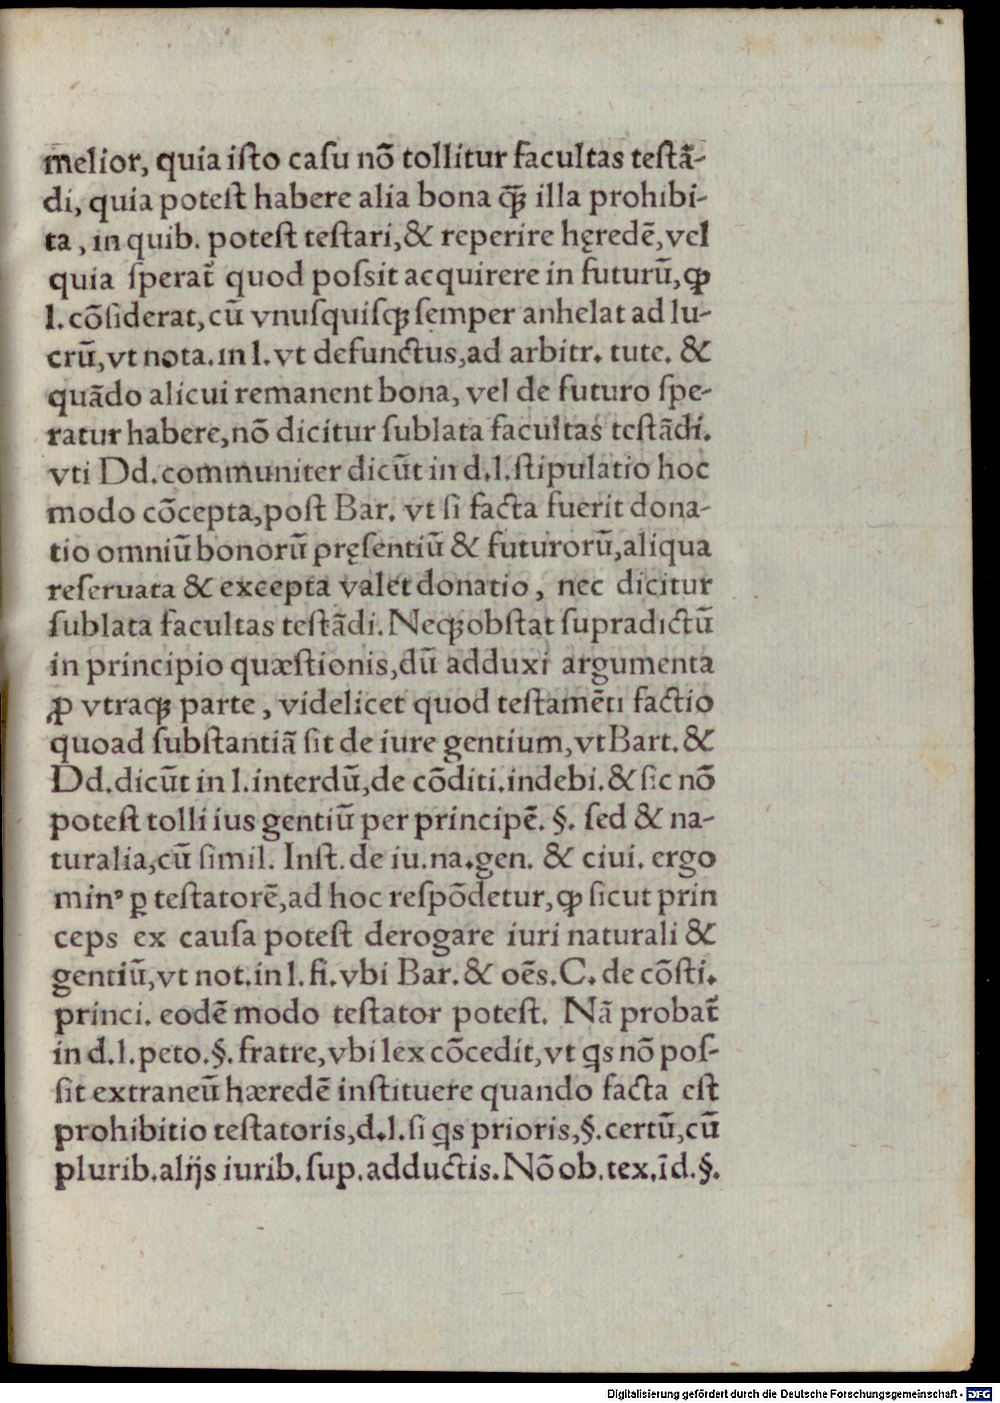 melior, quia iſto caſu nō tollitur facultas teſtā-
di, quia poteſt habere alia bona q̃ꝫ illa prohibi-
ta, in quib. poteſt teſtari, & reperire hęredē, vel
quia ſperat̃ quod poſsit acquirere in futurū, ꝙ
l. cōſiderat, cū vnuſquiſqꝫ ſemper anhelat ad lu-
crū, vt nota. in l. vt defunctus, ad arbitr. tute. &
quādo alicui remanent bona, vel de futuro ſpe-
ratur habere, nō dicitur ſublata facultas teſtādi.
vti Dd. communiter dicūt in d. l. ſtipulatio hoc
modo cōcepta, poſt Bar. vt ſi facta fuerit dona-
tio omniū bonorū pręſentiū & futurorū, aliqua
reſeruata & excepta valet donatio, nec dicitur
ſublata facultas teſtādi. Neqꝫ obſtat ſupradictū
in principio quæſtionis, dū adduxi argumenta
ꝓ vtraqꝫ parte, videlicet quod teſtamēti factio
quoad ſubſtantiā ſit de iure gentium, vt Bart. &
Dd. dicūt in l. interdū, de cōditi. indebi. & ſic nō
poteſt tolli ius gentiū per principē. §. ſed & na-
turalia, cū ſimil. Inſt. de iu. na. gen. & ciui. ergo
minꝰ ꝑ teſtatorē, ad hoc reſpōdetur, ꝙ ſicut prin
ceps ex cauſa poteſt derogare iuri naturali &
gentiū, vt not. in l. fi. vbi Bar. & oēs. C. de cōſti.
princi. eodē modo teſtator poteſt. Nā probat̃
in d. l. peto. §. fratre, vbi lex cōcedit, vt qs nō poſ-
ſit extraneū hæredē inſtituere quando facta eſt
prohibitio teſtatoris, d. l. ſi qs prioris, §. certū, cū
plurib. alijs iurib. ſup. adductis. Nō ob. tex. ī d. §.
Digitalisierung gefördert durch die Deutsche Forschungsgemeinschaft - DFG